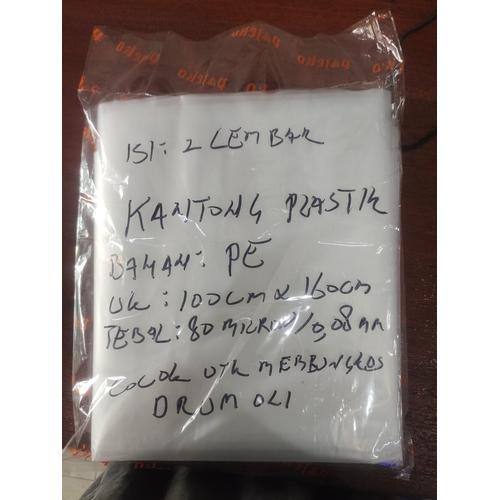 paleko paleko paleko
ISI: 2 LEMBAR
KANTONG PLASTIK
BAHAN: PE
UK: 100CM X 160CM
TEBAL: 80 MICRON/0,08MM
COCOK UTK MEMBUNGKUS
DRUM OLI